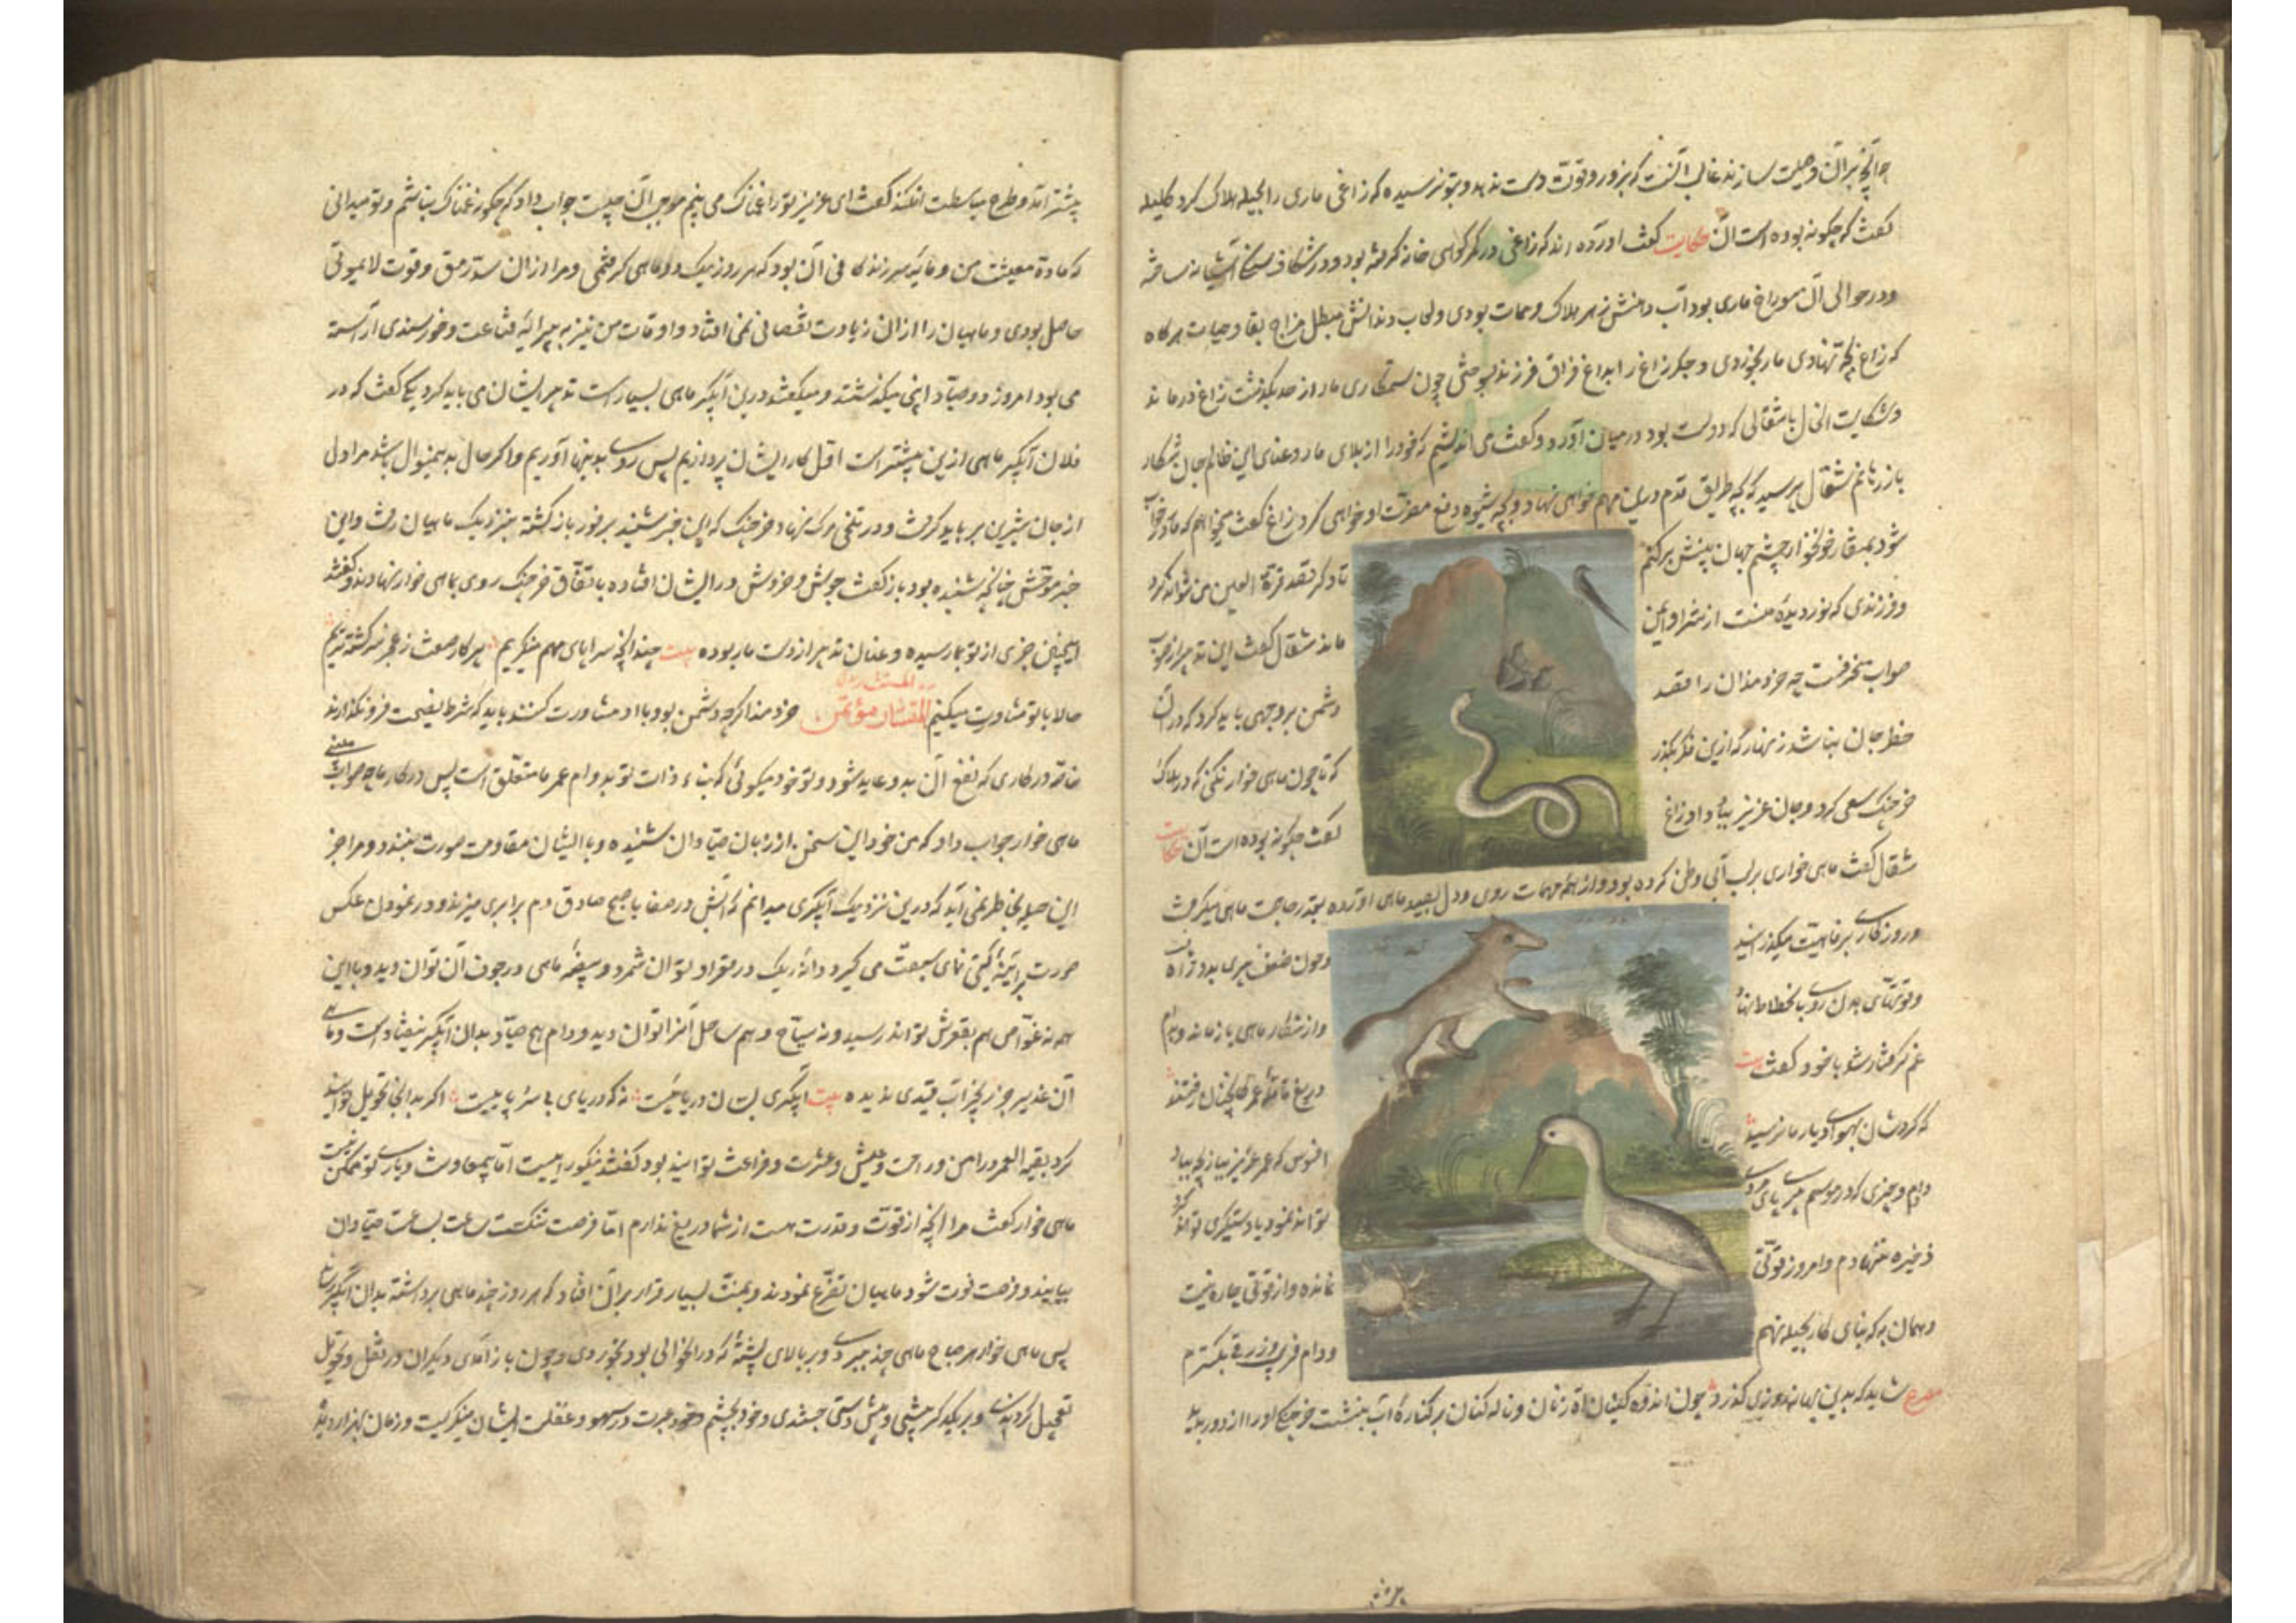 گفت که چگونه بوده است آن حکایت گفت آورده اند که زاغی در کمر کوهی خانه گرفته بود و در شکاف سنگی آشیانه ساخته
و در حوالی آن سوراخ ماری بود آب دهانش زهر هلاک و ممات بودی و لعاب دندانش مبطل مزاج بقا و حیات هرگاه
که زاغ بچه نهادی مار بخوردی و جگر زاغ را بداغ فراق فرزند بسوختی چون ستمکاری مار از حد بگذشت زاغ درماند
و شکایت الحال با شغالی که دوست بود در میان آورد و گفت می اندیشم که خود را از بلای مار و عنای این ظالم جان شکار
باز رهانم شغال پرسید که بچه طریق قدم درین مهم خواهی نهاد و بچه شیوه دفع مضرت او خواهی کرد زاغ گفت میخواهم که مار در خواب
شود بمنقار خونخوار چشم جهان بینش برکنم تا دگر قصد قرة العین من نتواند کرد
و فرزندی که نور دیده منست از شر او ایمن ماند شغال گفت این تدبیر از صوب
صواب منحرفست چه خردمندان را قصد دشمن بر وجهی باید کرد که در آن
خطر جان نباشد زنهار که ازین فکر بگذر که تا چون ماهی خوار نکنی که در هلاک
خرچنگ سعی کرد و جان عزیز بباد داد زاغ گفت چگونه بوده است آن حکایت
شغال گفت ماهی خواری بر لب آبی وطن کرده بود و از همه مهمات روی دل بصید ماهی آورده بقدر حاجت ماهی میگرفت
و روزگاری برفاهیت میگذرانید و چون ضعف پیری بدو راه یافت
و قوتهای بدن روی بانحطاط نهاد و از شکار ماهی باز ماند و بدام
غم گرفتار شد با خود گفت بیت دریغ قافله عمر کانچنان رفتند
که گردشان بهوای دیار ما نرسید افسوس که عمر عزیز ببازیچه بباد
دادم و چیزی که در موسم پیری پای مردی تواند نمود یا دستگیری تواند کرد
ذخیره ننهادم و امروز قوتی نمانده و از قوتی چاره نیست
و همان به که بنای کار بحیله نهم و دام فریب و زرقی بگسترم
مصرع شاید که بدین بهانه روزی گذرد چون اندوه گینان آه زنان و ناله کنان بر کناره آب بنشست خرچنگ او را از دور بدید
پیشتر آمد و طرح مباسطت افکند گفت ای عزیز ترا غمناک می بینم موجب آن چیست جواب داد که چگونه غمناک نباشم و تو میدانی
که ماده معیشت من و مایه زندگانی آن بود که هر روز یک دو ماهی گرفتمی و مرا از آن سد رمق و قوت لایموتی
حاصل بودی و ماهیان را از آن زیادت نقصانی نمی افتاد و اوقات من نیز به پیرایه قناعت و خورسندی آراسته
می بود امروز دو صیاد اینجا میگذشتند و میگفتند درین آبگیر ماهی بسیارست تدبیر ایشان می باید کرد یکی گفت که در
فلان آبگیر ماهی ازین بیشترست اول کار ایشان پردازیم پس روی بدینها آوریم و اگر حال بدینمنوال باشد مرا دل
از جان شیرین بر باید گرفت و در تلخی مرگ نهاد خرچنگ که این خبر شنید بر فور باز گشته بنزدیک ماهیان رفت و این
خبر موحش چنانچه شنیده بود باز گفت جوش و خروش در ایشان افتاده باتفاق خرچنگ روی بماهی خوار نهادند و گفتند
اینچنین خبری از تو بما رسیده و عنان تدبیر از دست ما ربوده بیت چندانکه سراپای مهم مینگریم پرگار صفت ز عجز سرگشته تریم
حالا با تو مشاورت میکنیم المستشار مؤتمن خردمند اگرچه دشمن بود با او مشاورت کنند باید که شرط نصیحت فرو نگذارد
خاصه در کاری که نفع آن بدو عاید شود و تو خود میگوئی که بقاء ذات تو بدوام عمر ما متعلق است پس در کار ما چه صواب می بینی
ماهی خوار جواب داد که من خود این سخن از زبان صیادان شنیده و با ایشان مقاومت صورت نبندد و مرا جز
این حیله بخاطر نمی آید که درین نزدیک آبگیری میدانم که آبش در صفا با صبح صادق دم برابری میزند و در نمودن عکس
صورت بر آئینه گیتی نمای سبقت می گیرد دانه ریگ در قعر او توان شمرد و بیضه ماهی در جوف آن توان دید و با این
همه نه غواص هم بقعرش تواند رسید و نه سیاح وهم ساحل آنرا تواند دید و دام هیچ صیاد بدان آبگیر نیفتاده است و ماهی
آن غدیر جز زنجیر آب قیدی ندیده بیت آبگیری بسان دریائیست نه که دریای بی سر و پائیست اگر بدانجا تحویل توانید
کرد بقیة العمر در امن و راحت و عیش و عشرت و فراغت توانید بود گفتند نیکو رائیست اما بیمعاونت و یاری تو ممکن نیست
ماهی خوار گفت مرا آنچه از قوت و قدرت هست از شما دریغ ندارم اما فرصت تنگست ساعت بساعت صیادان
بیایند و فرصت فوت شود ماهیان تضرع نمودند و بمنت بسیار قرار بر آن افتاد که هر روز چند ماهی برداشته بدان آبگیر رساند
پس ماهی خوار هر صباح ماهی چند ببردی و بر بالای پشته که در آن حوالی بود بخوردی و چون باز آمدی دیگران در نقل و تحویل
تعجیل کردندی و بر یکدیگر پیشی و پیش دستی جستندی و خرد بچشم عبرت در سهو و غفلت ایشان مینگریست و زمان بهزار دیده